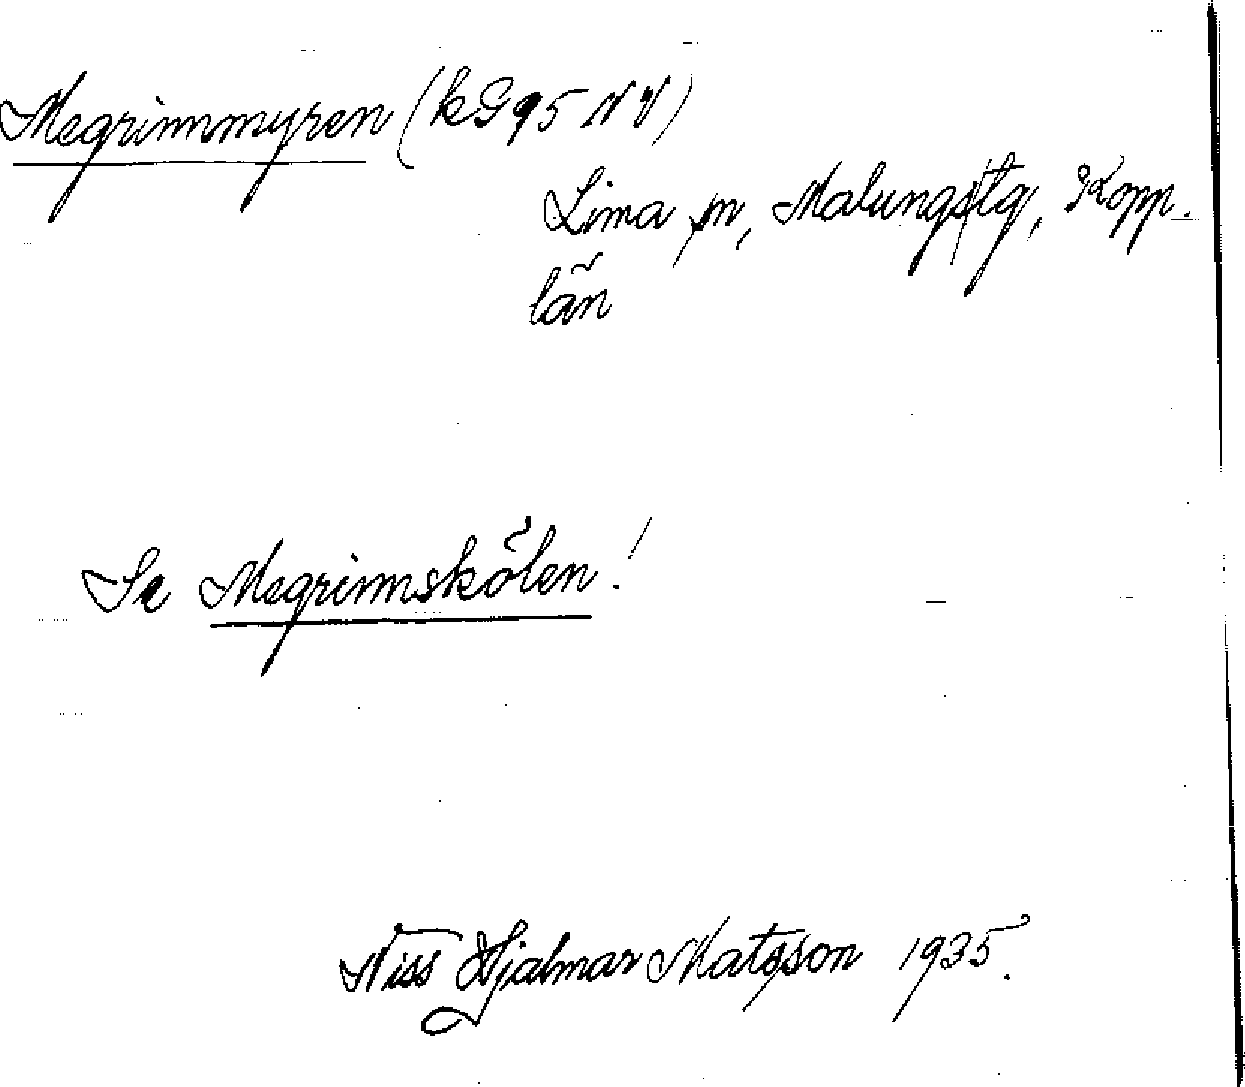 Megrimmyren (kG95 NV)
Lima sn, Malungs tg, Kopp.
län
Se Megrimskölen!
Niss Hjalmar Matsson 1935.